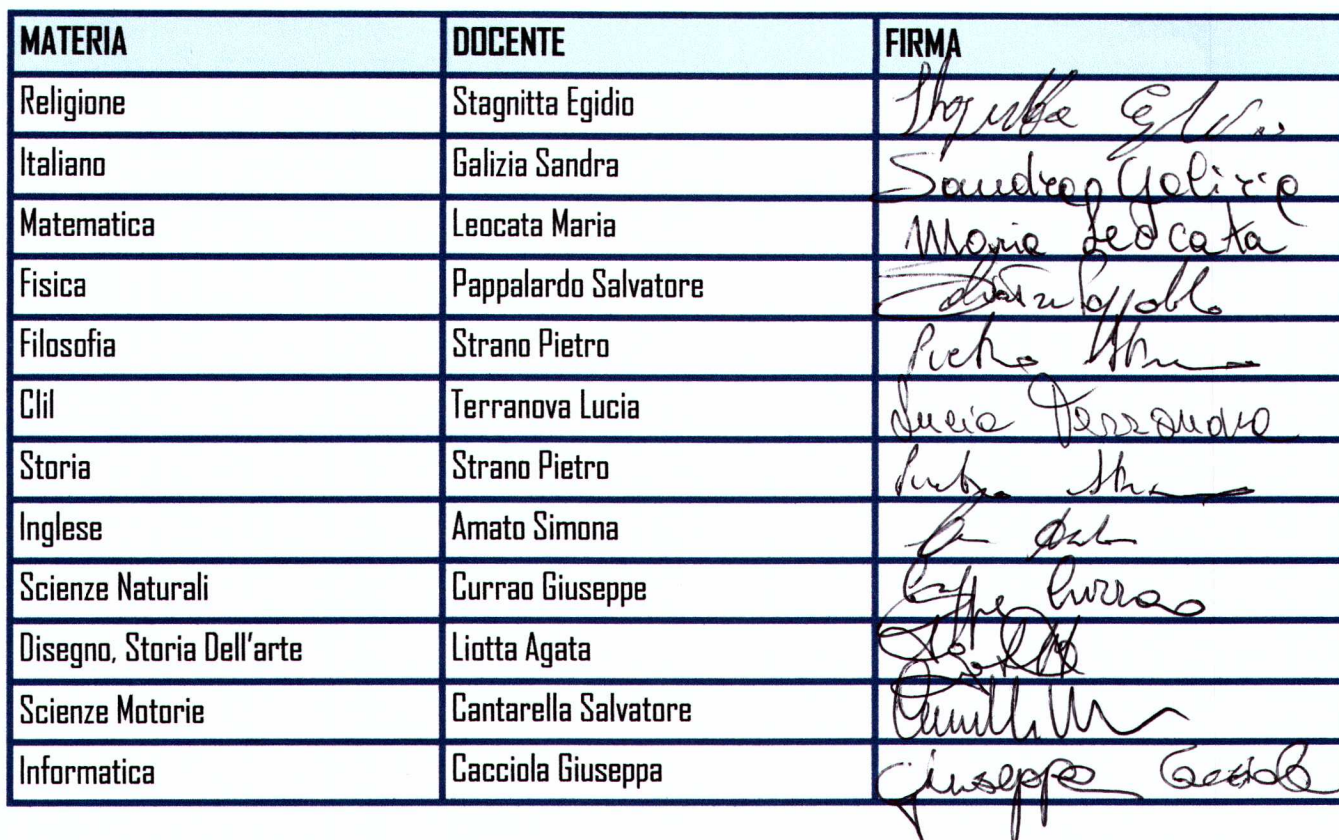 MATERIA DOCENTE FIRMA
Religione Stagnitta Egidio Stagnitta Egidio
Italiano Galizia Sandra Sandra Galizia
Matematica Leocata Maria Maria Leocata
Fisica Pappalardo Salvatore
Filosofia Strano Pietro Pietro
Clil Terranova Lucia Lucia Terranova
Storia Strano Pietro
Inglese Amato Simona
Scienze Naturali Currao Giuseppe Currao
Disegno, Storia Dell'arte Liotta Agata
Scienze Motorie Cantarella Salvatore
Informatica Cacciola Giuseppa Giuseppa Cacciola